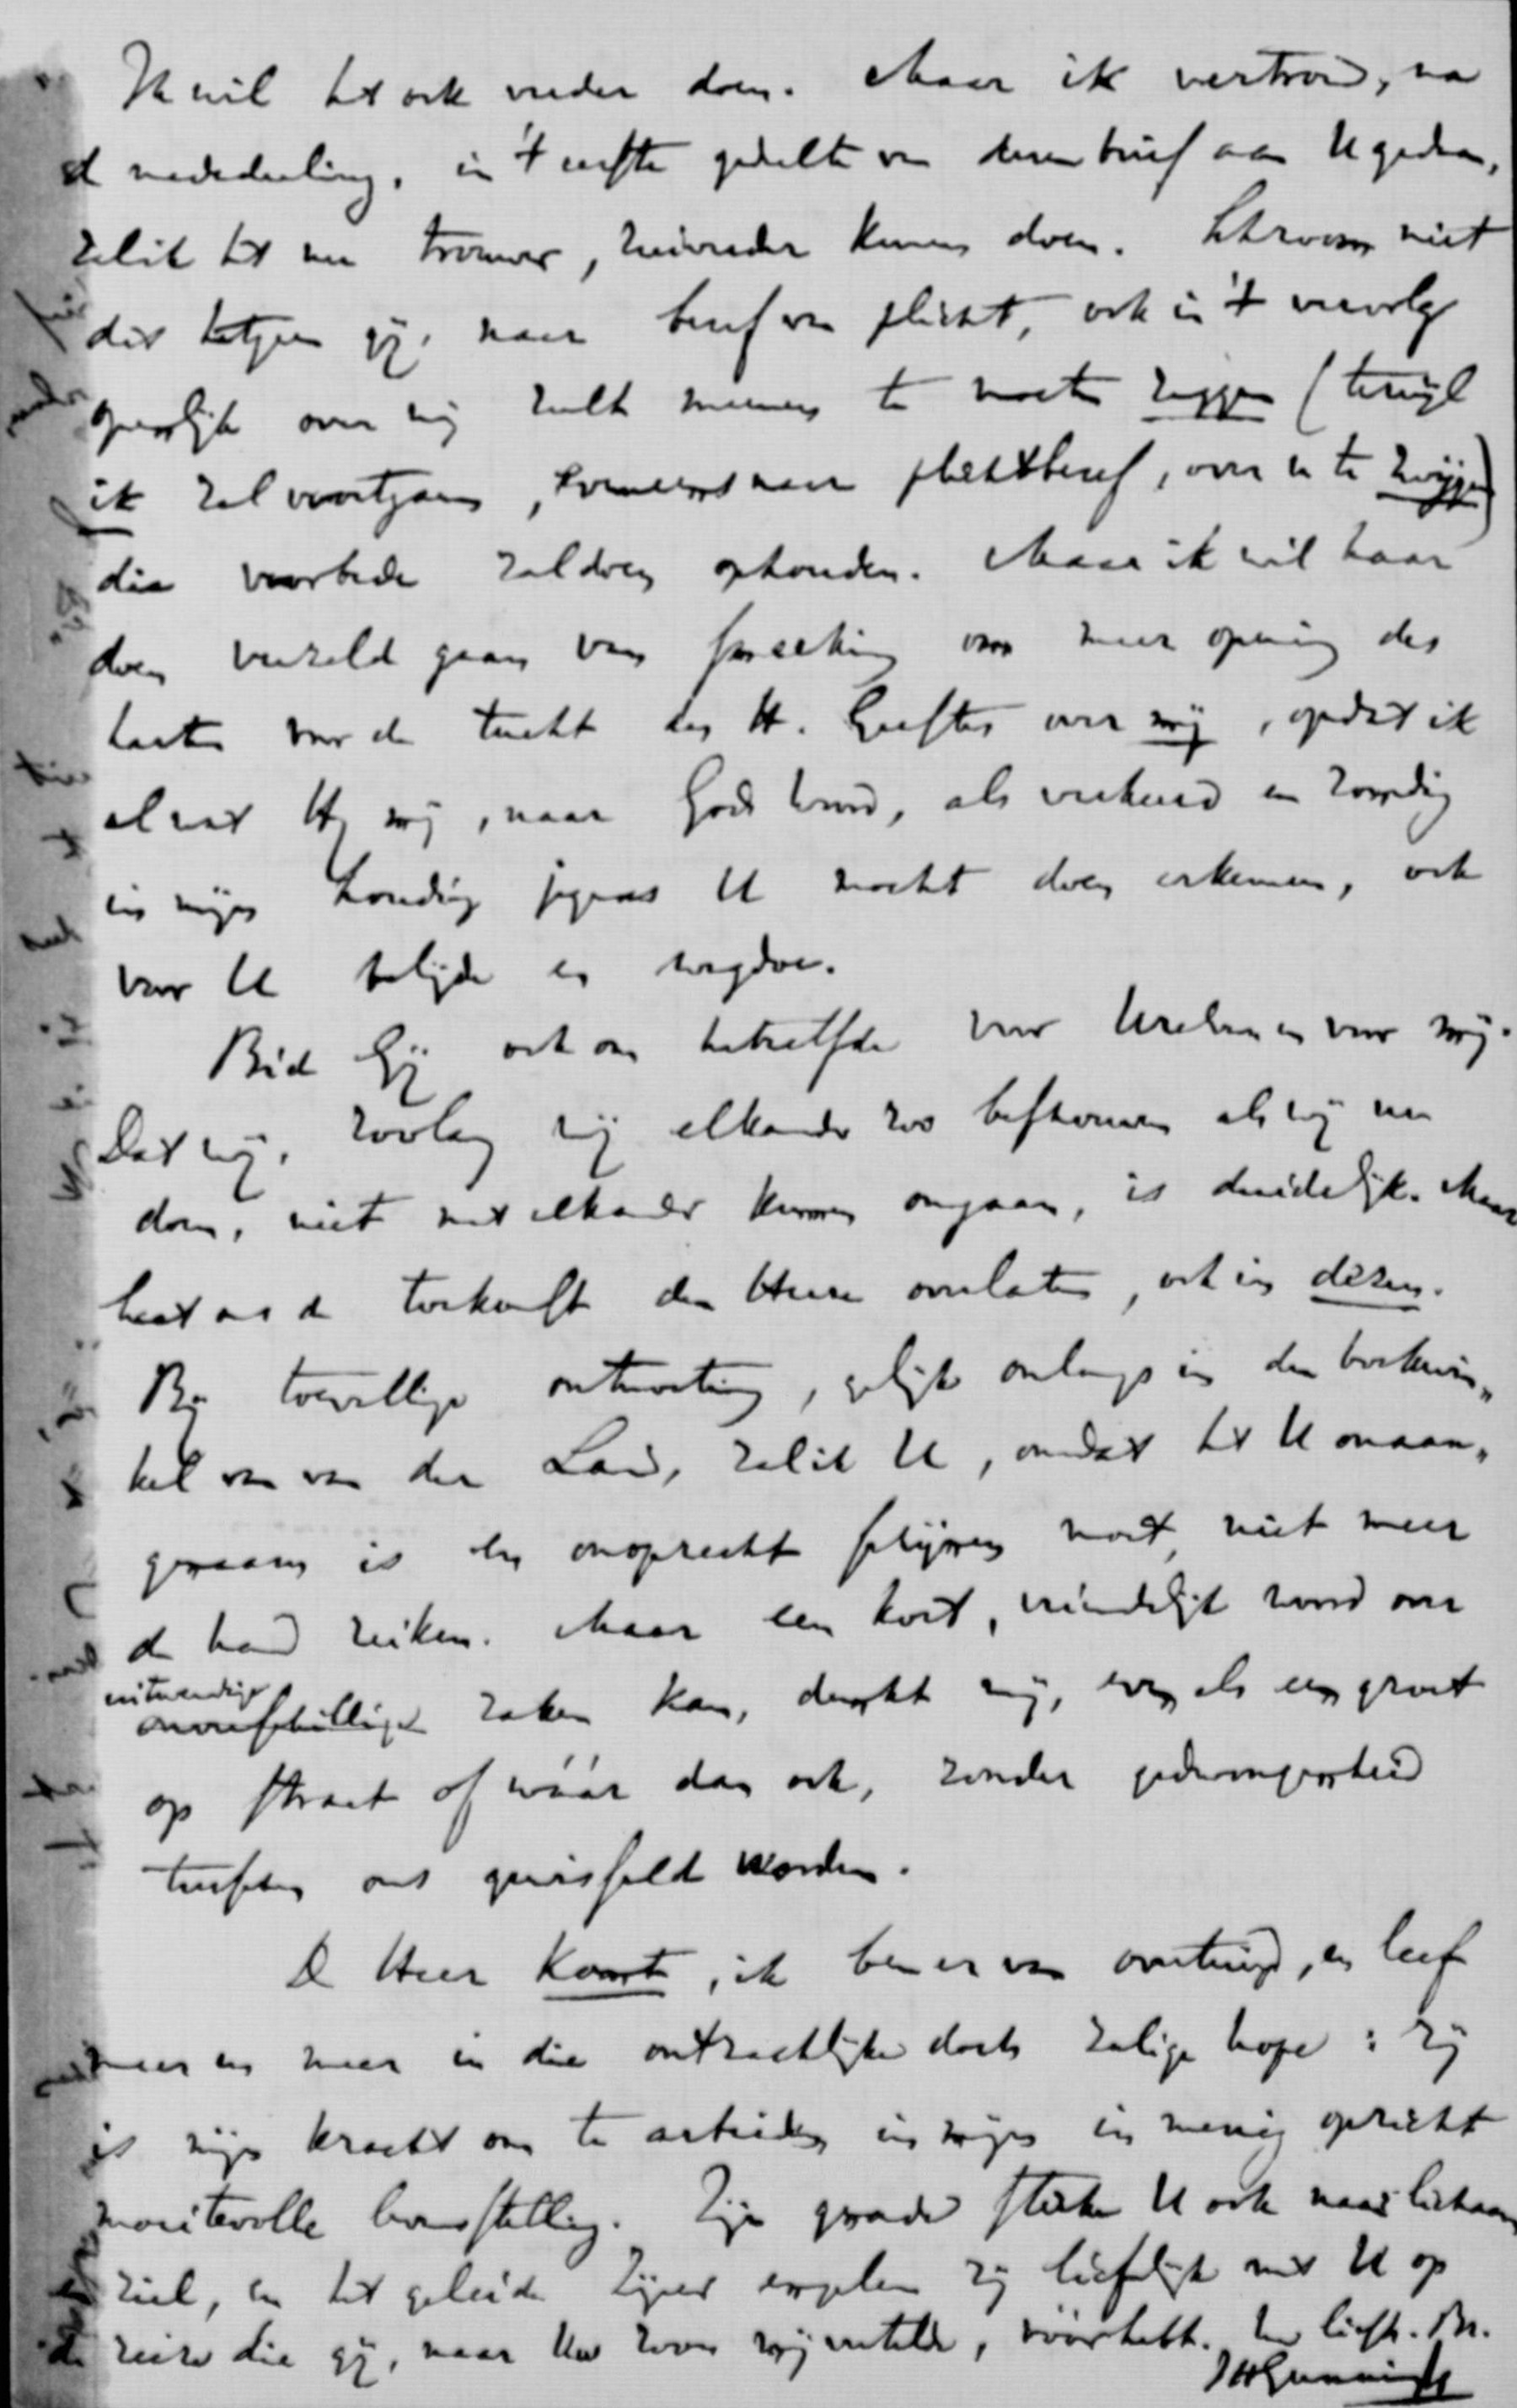 Ik wil het ook verder doen. Maar ik vertrouw, na
de mededeeling, in 't eerste gedeelte van dezen brief aan U gedaan,
zal ik het nu trouwer, meerder kunnen doen. Schroom niet
dat hetgeen gij, naar besef van plicht, ook in 't vervolg
openlijk over mij zult meenen te moeten zeggen (terwijl
ik zal voortgaan, evenzeer naar plichtbesef, over U te zwijgen)
die voorbede zal doen ophouden. Maar ik wil haar
doen verzeld gaan van smeeking om meer opening des
harten voor de tucht des H. Geestes over mij, opdat ik
al wat Hij mij, naar Gods Woord, als verkeerd en zondig
in mijne houding jegens U mocht doen erkennen, ook
voor U belijde en wegdoe.
Bid Gij ook om hetzelfde voor Uzelven en voor mij.
Dat wij, zoolang wij elkander zoo beschouwen als wij nu
doen, niet met elkander kunnen omgaan, is duidelijk. Maar
laat ons de toekomst den Heere overlaten, ook in dezen.
Bij toevallige ontmoeting, gelijk onlangs in den boekwin„
kel van van der Land, zal ik U, omdat het U onaan„
genaam is en onoprecht schijnen moet, niet meer
de hand reiken. Maar een kort, vriendelijk woord over
uitwendige
onverschillige zaken kan, dunkt mij, even als een groet
op straat of wáár dan ook, zonder gedwongenheid
tusschen ons gewisseld worden.
De Heer komt, ik ben er van overtuigd, en leef
meer en meer in die ontzachlijke doch zalige hope: zij
is mijne kracht om te arbeiden in mijne in menig opzicht
moeitevolle levensstelling. Zijne genade sterke U ook naar lichaam
ziel, en het geleide Zijner engelen zij liefelijk met U op
de reize die gij, naar Uw zoon mij vertelde, vóórhebt. Uw liefh. Br.
JHGunning